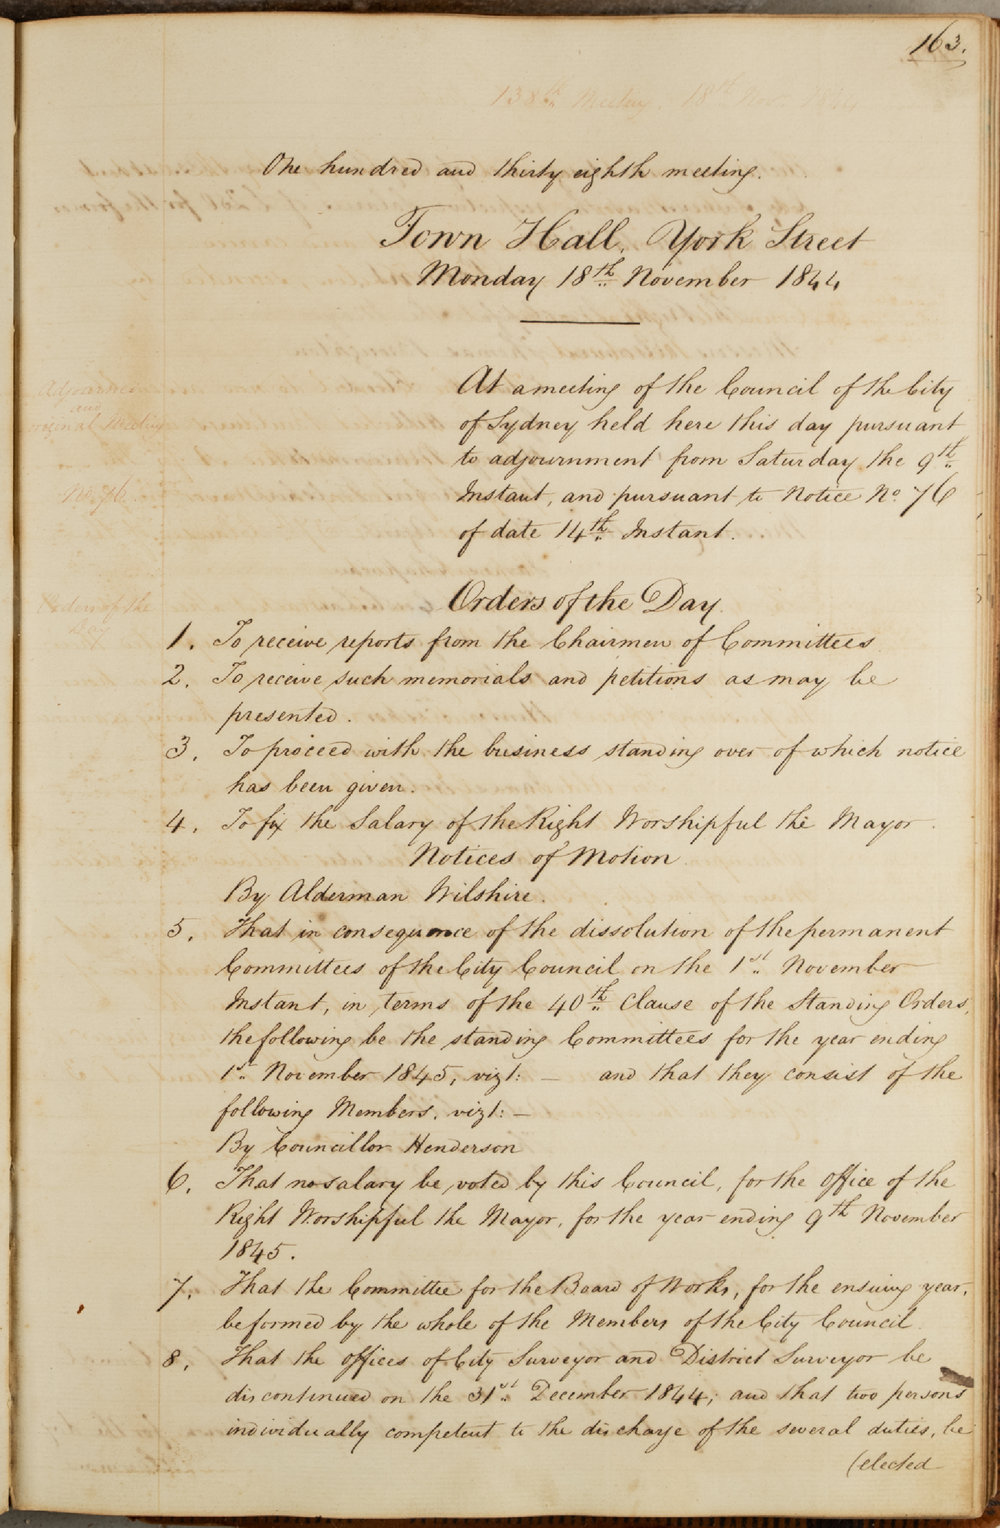 163.
138th Meeting. 18th Nov. 1844
One hundred and thirty eighth meeting.
Town Hall, York Street
Monday 18th November 1844
At a meeting of the Council of the City
of Sydney held here this day pursuant
to adjournment from Saturday the 9th
Instant, and pursuant to Notice No. 76
of date 14th Instant.
Adjourned
and
original Meeting
No. 76
Orders of the
Day
Orders of the Day.
1. To receive reports from the Chairmen of Committees
2. To receive such memorials and petitions as may be
presented.
3. To proceed with the business standing over of which notice
has been given.
4. To fix the Salary of the Right Worshipful the Mayor.
Notices of Motion
By Alderman Wilshire.
5. That in consequence of the dissolution of the permanent
Committees of the City Council on the 1st November
Instant, in terms of the 40th Clause of the Standing Orders,
the following be the standing Committees for the year ending
1st November 1845, vizt: — and that they consist of the
following Members, vizt: —
By Councillor Henderson
6. That no salary be voted by this Council, for the office of the
Right Worshipful the Mayor, for the year ending 9th November
1845.
7. That the Committee for the Board of Works, for the ensuing year,
be formed by the whole of the Members of the City Council.
8. That the offices of City Surveyor and District Surveyor be
discontinued on the 31st December 1844; and that two persons
individually competent to the discharge of the several duties, be
(elected